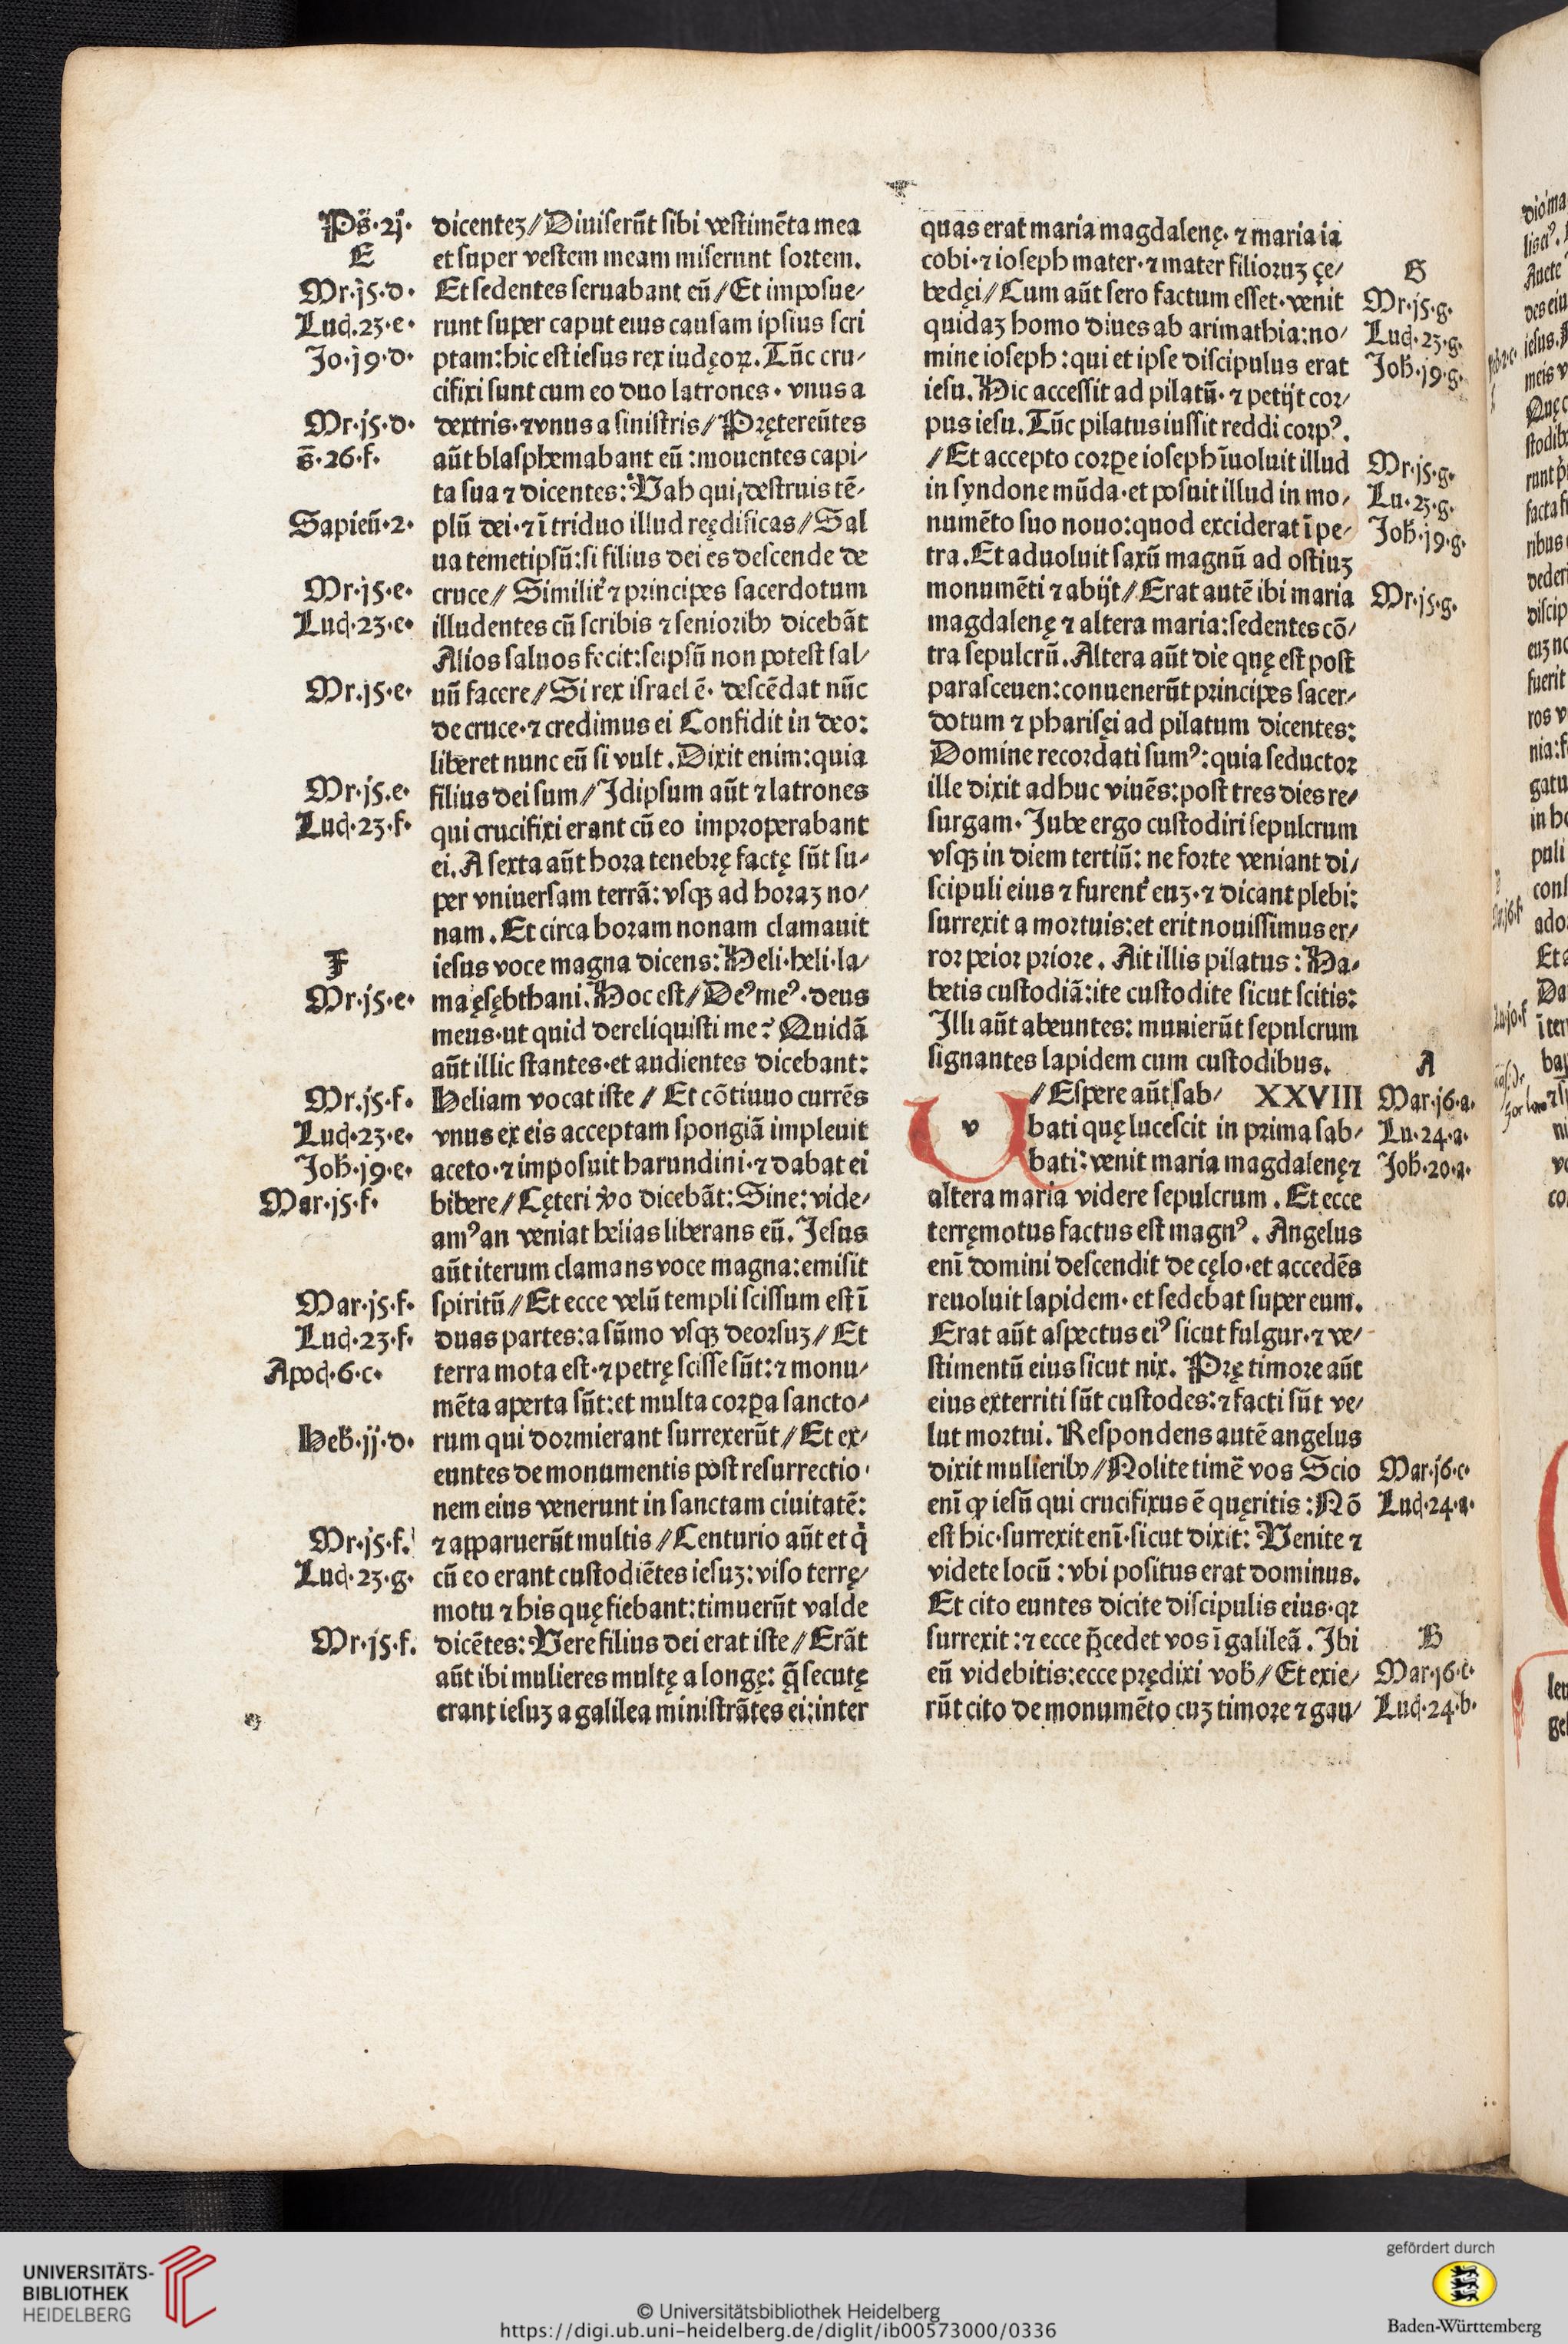 Ps̄·2j· dicentez/Diuiserūt sibi vestimēta mea
E et super vestem meam miserunt sortem.
Mr·j5·d· Et sedentes seruabant eū/Et imposue/
Luc̄·23·e· runt super caput eius causam ipsius scri
Jo·j9·d· ptam:hic est iesus rex iudęoꝝ. Tūc cru/
cifixi sunt cum eo duo latrones· vnus a
Mr·j5·d· dextris·⁊vnus a sinistris/Prętereūtes
s̄·26·f· aūt blasphemabant eū:mouentes capi/
ta sua ⁊ dicentes:Vah qui destruis tē/
Sapien̄·2· plū dei·⁊ī triduo illud reędificas/Sal
ua temetipsū:si filius dei es descende de
Mr·j5·e· cruce/ Similit᷑ ⁊ principes sacerdotum
Luc̄·23·e· illudentes cū scribis ⁊ seniorib⁹ dicebāt
Alios saluos fecit:seipsū non potest sal/
Mr·j5·e· uū facere/Si rex israel ē· descēdat nūc
de cruce·⁊ credimus ei Confidit in deo:
liberet nunc eū si vult. Dixit enim:quia
Mr·j5·e· filius dei sum/Idipsum aūt ⁊ latrones
Luc̄·23·f· qui crucifixi erant cū eo improperabant
ei. A sexta aūt hora tenebrę factę sūt su/
per vniuersam terrā:vsqꝫ ad horaz no/
nam. Et circa horam nonam clamauit
F iesus voce magna dicens:Heli·heli·la/
Mr·j5·e· ma ęsębthani. Hoc est/De⁹me⁹·deus
meus·ut quid dereliquisti me? Quidā
aūt illic stantes·et audientes dicebant:
Mr·j5·f· Heliam vocat iste/ Et cōtinuo currēs
Luc̄·23·e· vnus ex eis acceptam spongiā impleuit
Joh̄·j9·e· aceto·⁊ imposuit harundini·⁊ dabat ei
Mar·j5·f· bibere/Cęteri ꝟo dicebāt:Sine:vide/
am⁹ an veniat helias liberans eū. Jesus
aūt iterum clamans voce magna:emisit
Mar·j5·f· spiritū/Et ecce velū templi scissum est ī
Luc̄·23·f· duas partes:a sūmo vsqꝫ deorsuz/Et
Apoc̄·6·c· terra mota est·⁊ petrę scisse sūt:⁊ monu/
mēta aperta sūt:et multa corꝑa sancto/
Heb̄·jj·d· rum qui dormierant surrexerūt/Et ex/
euntes de monumentis post resurrectio/
nem eius venerunt in sanctam ciuitatē:
Mr·j5·f· ⁊ apparuerūt multis/Centurio aūt et q̇
Luc̄·23·g· cū eo erant custodiētes iesuz:viso terrę/
motu ⁊ his quę fiebant:timuerūt valde
Mr·j5·f. dicētes:Vere filius dei erat iste/Erāt
aūt ibi mulieres multę a longę: q̄ secutę
erant iesuz a galilea ministrātes ei:inter
quas erat maria magdalenę· ⁊ maria ia
cobi·⁊ ioseph mater·⁊ mater filioruz çe/ G
bedęi/Cum aūt sero factum esset·venit Mr·j5·g·
quidaz homo diues ab arimathia:no/ Luc̄·23·g·
mine ioseph:qui et ipse discipulus erat Joh̄·j9·g·
iesu. Hic accessit ad pilatū· ⁊ petijt cor/
pus iesu. Tūc pilatus iussit reddi corp⁹.
/Et accepto corꝑe ioseph īuoluit illud Mr·j5·g·
in syndone mūda·et posuit illud in mo/ Lu·23·g·
numēto suo nouo:quod exciderat ī pe/ Joh̄·j9·g·
tra. Et aduoluit saxū magnū ad ostiuz
monumēti ⁊ abijt/Erat autē ibi maria Mr·j5·g·
magdalenę ⁊ altera maria:sedentes cō/
tra sepulcrū. Altera aūt die quę est post
parasceuen:conuenerūt principes sacer/
dotum ⁊ pharisęi ad pilatum dicentes:
Domine recordati sum⁹:quia seductor
ille dixit adhuc viuēs:post tres dies re/
surgam· Jube ergo custodiri sepulcrum
vsqꝫ in diem tertiū: ne forte veniant di/
scipuli eius ⁊ furent᷑ euz·⁊ dicant plebi:
surrexit a mortuis:et erit nouissimus er/
ror peior priore. Ait illis pilatus:Ha/
betis custodiā:ite custodite sicut scitis:
Illi aūt abeuntes: munierūt sepulcrum
signantes lapidem cum custodibus. A
/Espere aūt sab/ XXVIII Mar·j6·a·
v bati quę lucescit in prima sab/ Lu·24·a·
bati:venit maria magdalenę⁊ Joh̄·20·a·
altera maria videre sepulcrum. Et ecce
terręmotus factus est magn⁹. Angelus
enī domini descendit de cęlo·et accedēs
reuoluit lapidem· et sedebat super eum.
Erat aūt aspectus ei⁹ sicut fulgur·⁊ ve/
stimentū eius sicut nix. Prę timore aūt
eius exterriti sūt custodes:⁊ facti sūt ve/
lut mortui. Respondens autē angelus
dixit mulierib⁹/Nolite timē̄ vos Scio Mar·j6·c·
enī ꝙ iesū qui crucifixus ē quęritis:Nō Luc̄·24·a·
est hic·surrexit enī·sicut dixit: Venite ⁊
videte locū:vbi positus erat dominus.
Et cito euntes dicite discipulis eius·qꝛ
surrexit:⁊ ecce p̄cedet vos ī galileā. Ibi B
eū videbitis:ecce prędixi vob̄/Et exie/ Mar·j6·c·
rūt cito de monumēto cuz timore ⁊ gau/ Luc̄·24·b·
UNIVERSITÄTS-
BIBLIOTHEK
HEIDELBERG
© Universitätsbibliothek Heidelberg
https://digi.ub.uni-heidelberg.de/diglit/ib00573000/0336
gefördert durch
Baden-Württemberg